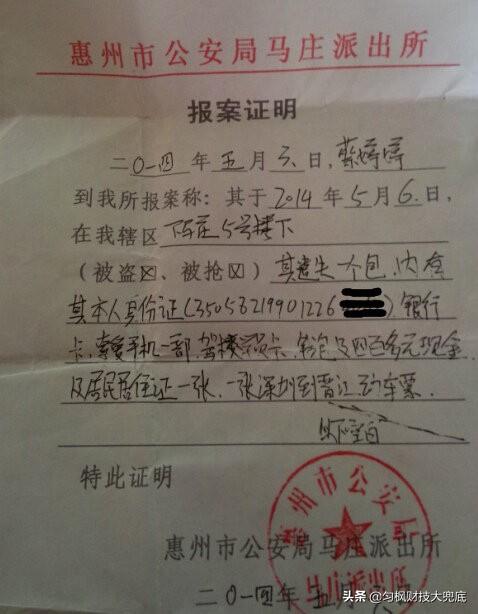 惠州市公安局马庄派出所
报案证明
二〇一四年五月六日,蔡婷婷
到我所报案称:其于2014年5月6日,
在我辖区下陈庄5号楼下
(被盗☒、被抢☒)其遗失一个包,内含
其本人身份证(35058219901226),银行
卡,索爱手机一部,驾校学员卡,钱包及四百多元现金
及居民居住证一张,一张深圳到晋江动车票.
以下空白
特此证明
惠州市公安局
马庄派出所
惠州市公安局马庄派出所
二〇一四年五月六日
头条 @匀枫财技大兜底